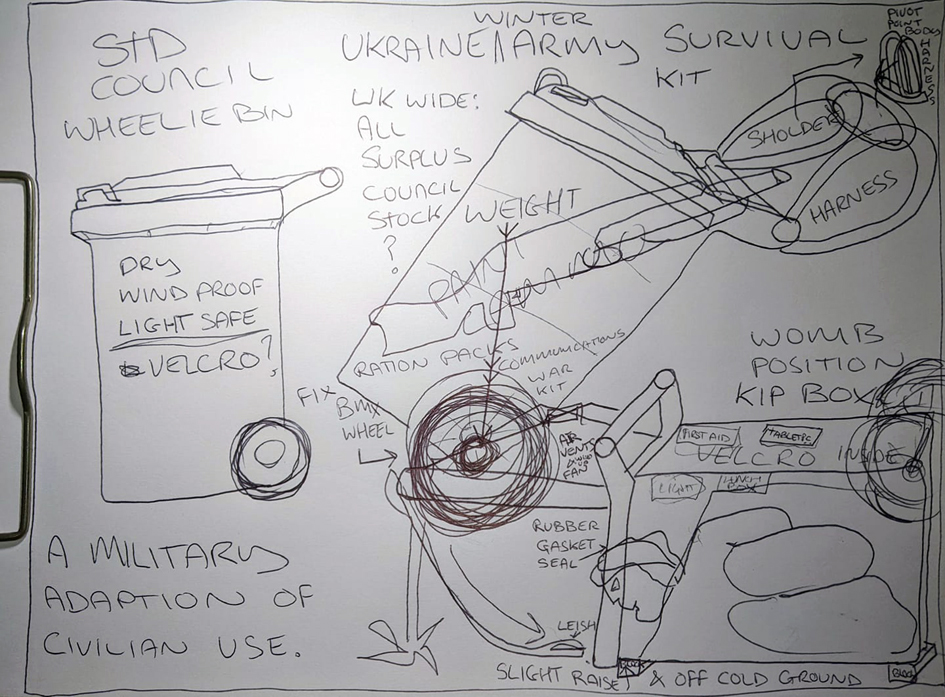 STD
COUNCIL
WHEELIE BIN
WINTER
UKRAINE//ARMY SURVIVAL
KIT
UK WIDE:
ALL
SURPLUS
COUNCIL
STOCK
?
PIVOT
POINT
BODY
HARNESS
SHOLDER
HARNESS
WEIGHT
DRY
WIND PROOF
LIGHT SAFE
VELCRO?
RATION PACKS
COMMUNICATIONS
WAR
KIT
FIX
BMX
WHEEL
WOMB
POSITION
KIP BOX
AIR
VENTS
FAN
FIRST AID
VELCRO INSIDE
LIGHT
RUBBER
GASKET
SEAL
LEISH
A MILITARY
ADAPTION OF
CIVILIAN USE.
SLIGHT RAISE & OFF COLD GROUND